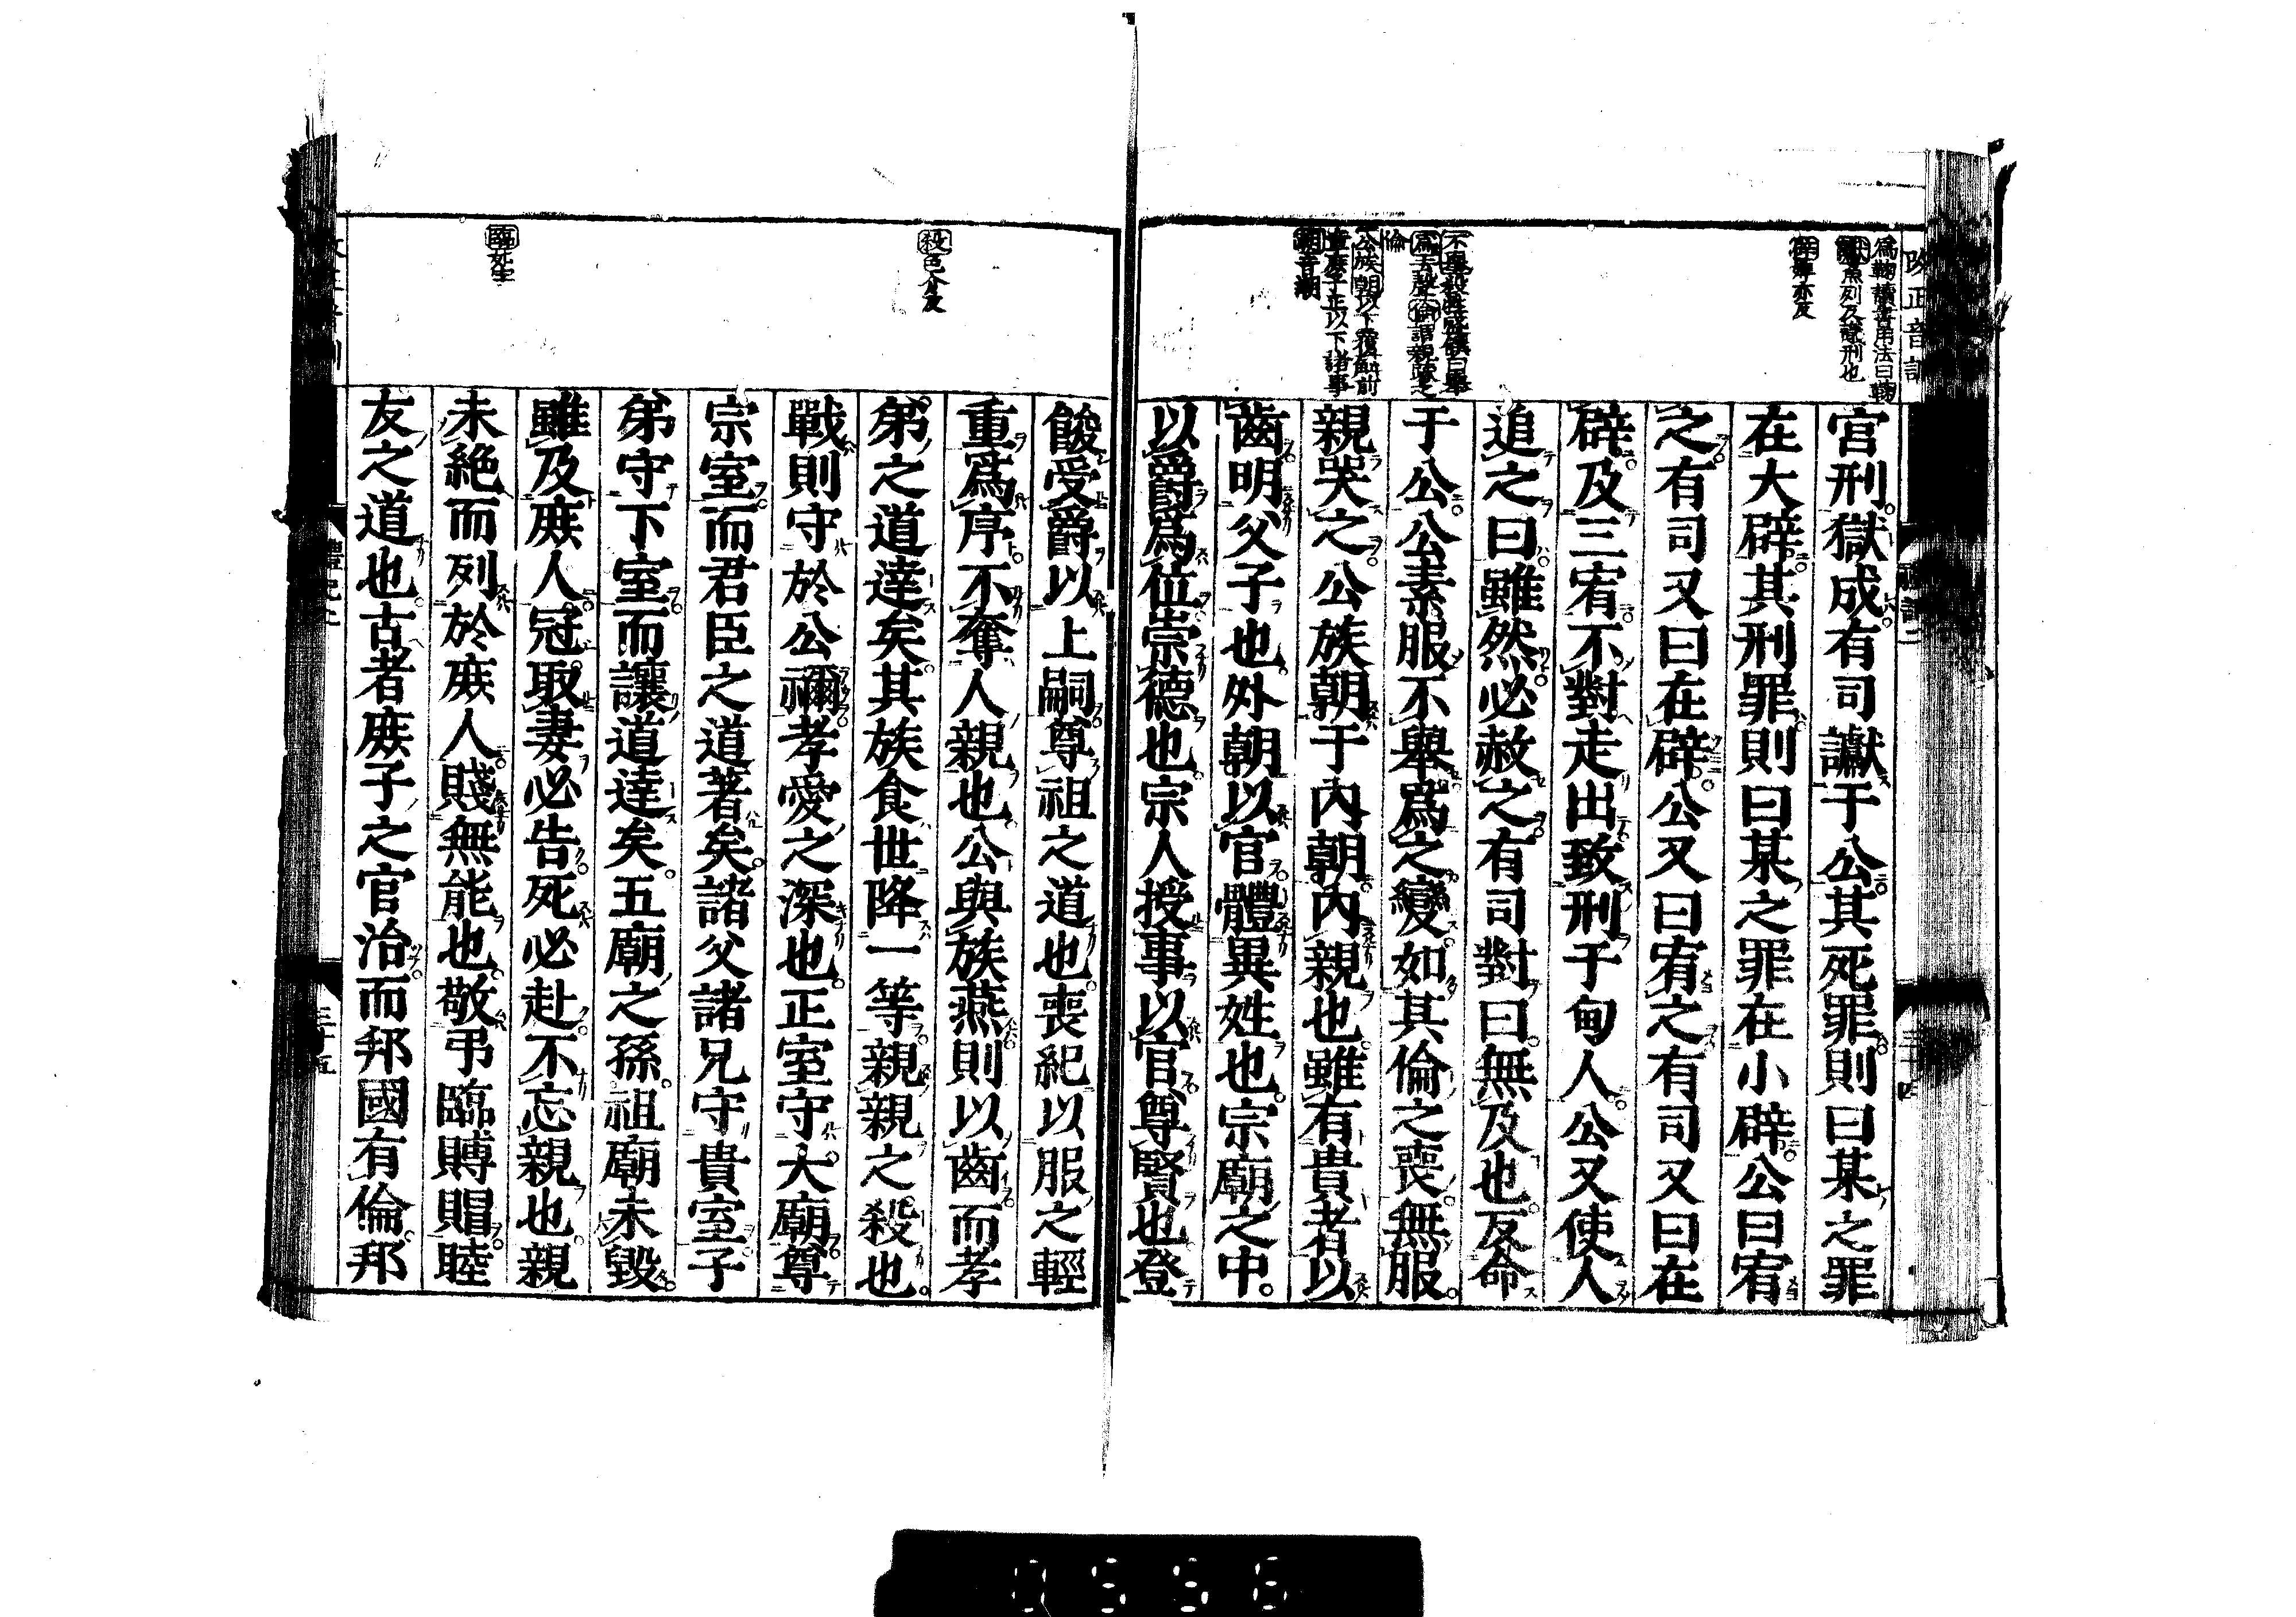 改正音訓
爲鞠讀書用法曰鞠
讞魚列反讞刑也
辟婢亦反
宮刑獄成有司讞于公其死罪則曰某之罪
在大辟其刑罪則曰某之罪在小辟公曰宥
之有司又曰在辟公又曰宥之有司又曰在
辟及三宥不對走出致刑于甸人公又使人
追之曰雖然必赦之有司對曰無及也反命
于公公素服不舉爲之變如其倫之喪無服
親哭之公族朝于內朝內親也雖有貴者以
齒明父子也外朝以官體異姓也宗廟之中
以爵爲位崇德也宗人授事以官尊賢也登
爲去聲倫謂親疎之
倫
公族朝以下覆解前
章庶子正以下諸事
朝音潮
三十四
餕受爵以上嗣尊祖之道也喪紀以服之輕
重爲序不奪人親也公與族燕則以齒而孝
弟之道達矣其族食世降一等親親之殺也
戰則守於公禰孝愛之深也正室守大廟尊
宗室而君臣之道著矣諸父諸兄守貴室子
弟守下室而讓道達矣五廟之孫祖廟未毀
雖及庶人冠取妻必告死必赴不忘親也親
未絶而列於庶人賤無能也敬弔臨賻賵睦
友之道也古者庶子之官治而邦國有倫邦
殺色介反
臨如字
三十五
0556